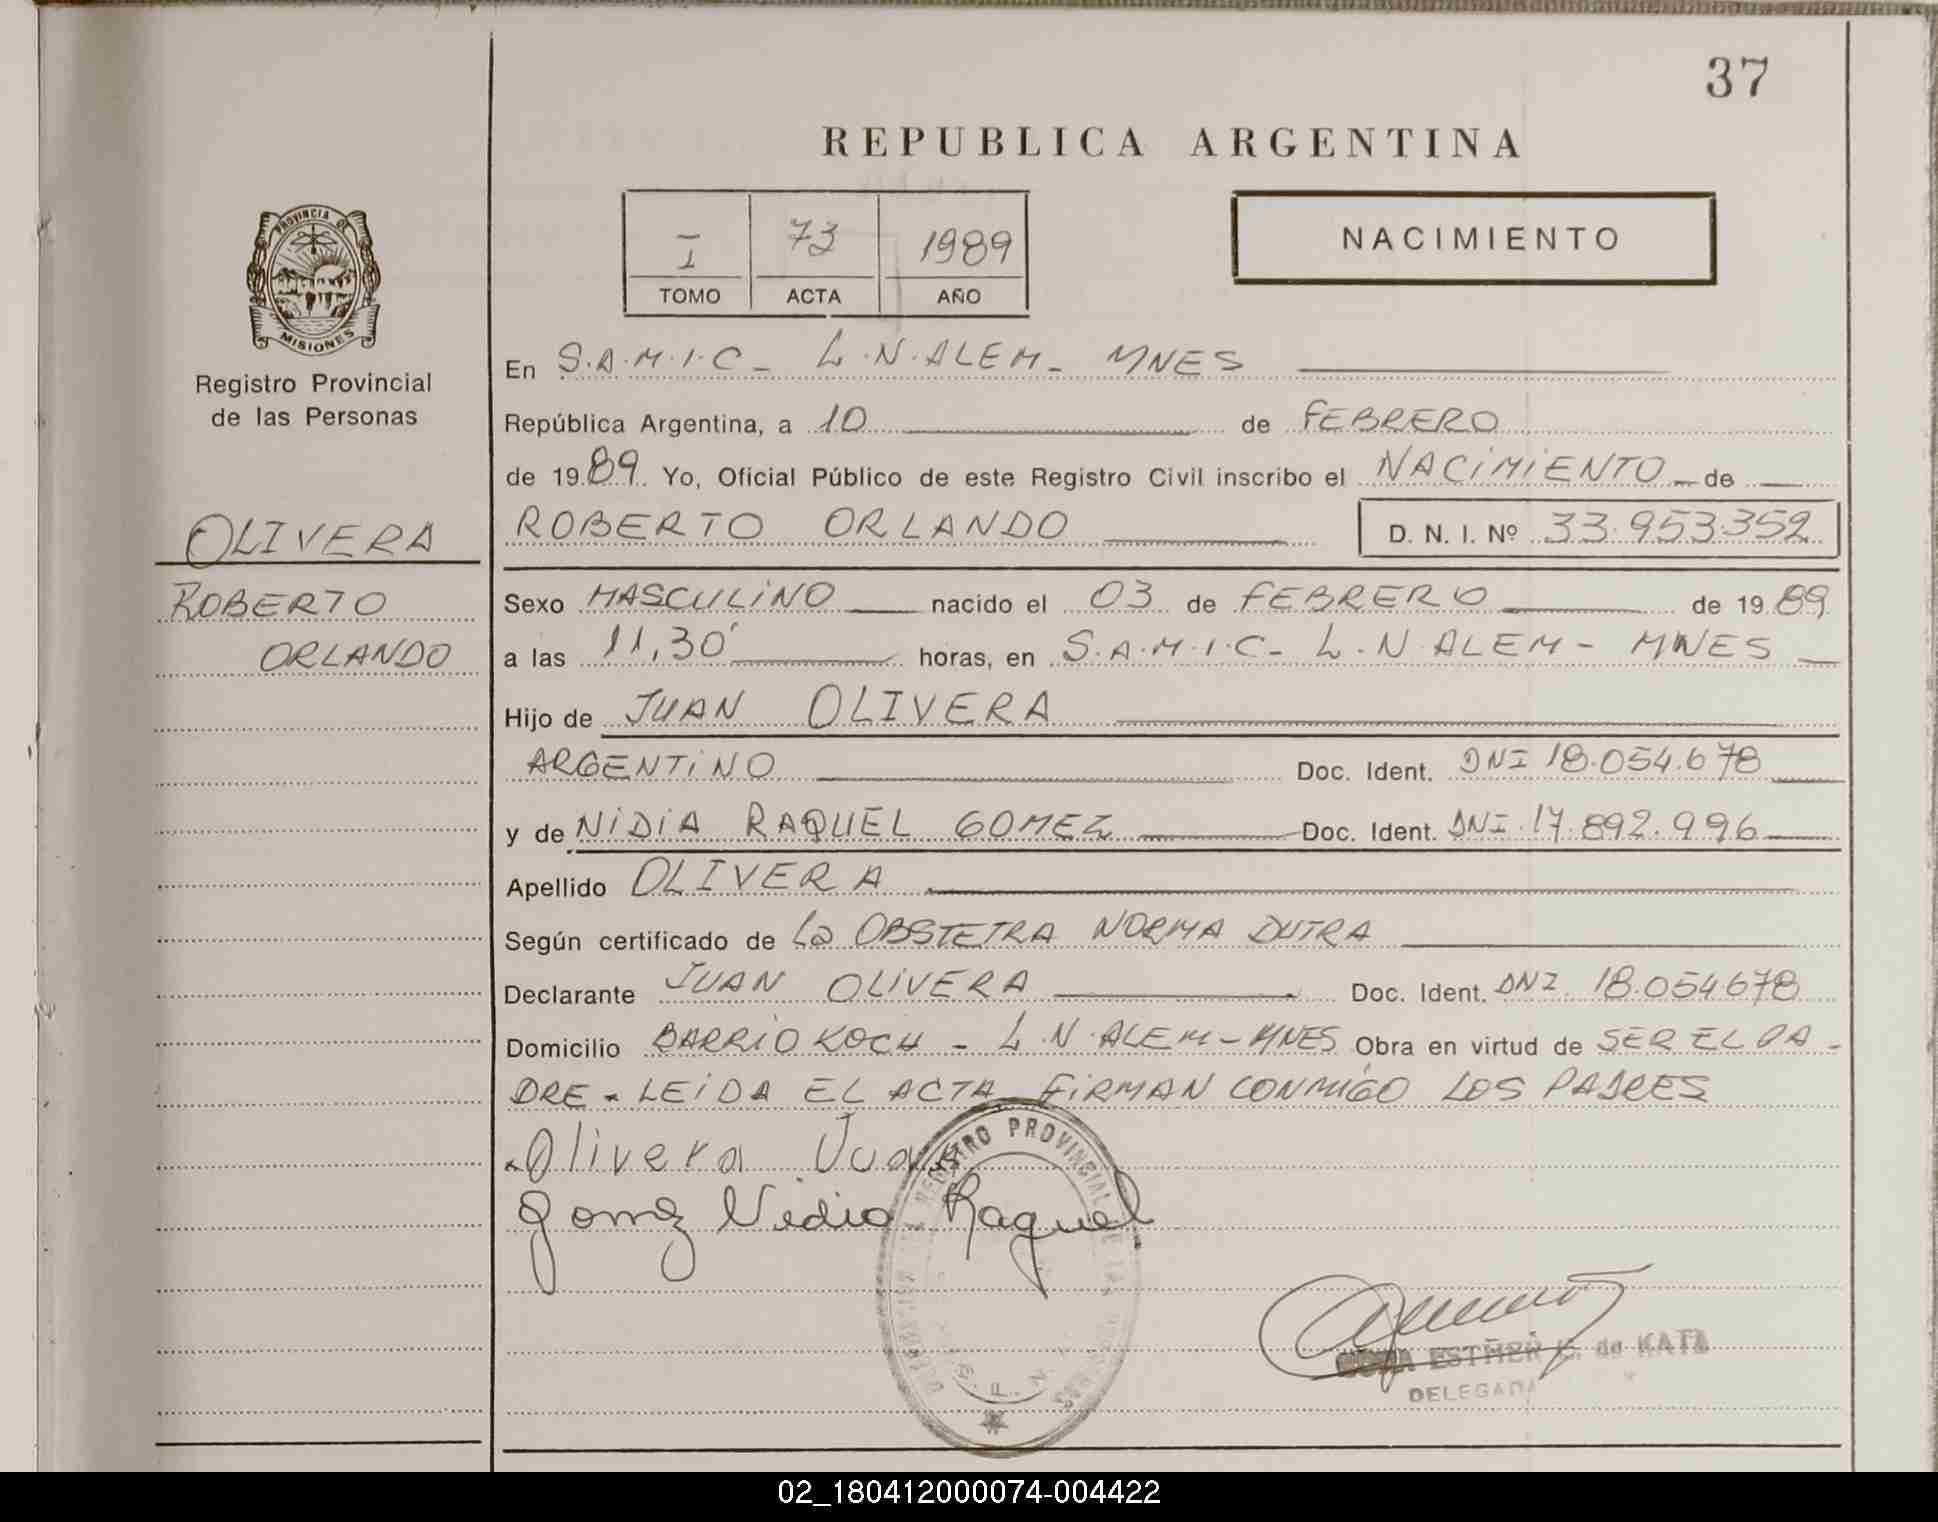 37
REPUBLICA ARGENTINA
I 73 1989
TOMO ACTA AÑO
NACIMIENTO
PROVINCIA DE
MISIONES
Registro Provincial
de las Personas
OLIVERA
ROBERTO
ORLANDO
En S.A.M.I.C - L.N.ALEM - MNES
República Argentina, a 10 de FEBRERO
de 1989. Yo, Oficial Público de este Registro Civil inscribo el NACIMIENTO de
ROBERTO ORLANDO D. N. I. Nº 33.953.352
Sexo MASCULINO nacido el 03 de FEBRERO de 1989
a las 11,30' horas, en S.A.M.I.C - L.N ALEM - MNES
Hijo de JUAN OLIVERA
ARGENTINO Doc. Ident. DNI 18.054.678
y de NIDIA RAQUEL GOMEZ Doc. Ident. DNI 17.892.996
Apellido OLIVERA
Según certificado de La OBSTETRA NORMA DUTRA
Declarante JUAN OLIVERA Doc. Ident. DNI 18.054678
Domicilio BARRIO KOCH - L.N.ALEM - MNES Obra en virtud de SER EL PA-
DRE - LEIDA EL ACTA FIRMAN CONMIGO LOS PADRES
Olivera Juan
Gomez Nidia Raquel
REGISTRO PROVINCIAL DE LAS
ESTHER de KATZ
DELEGADA
02_180412000074-004422